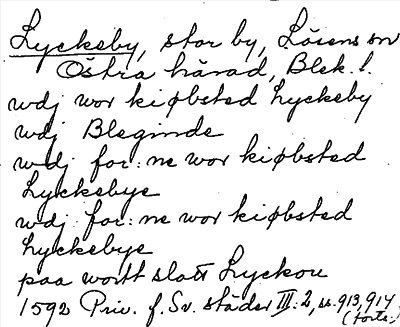 Lyckeby, stor by, Lösens sn
Östra härad, Blek. l.
wdj wor kiøbsted Lyckeby
wdj Bleginde
wdj for:ne wor kiøbsted
Lykkebye
wdj for:ne wor kiøbsted
Lyckebye
paa wortt slott Lyckou
1592 Priv. f. Sv. städer III: 2, ss. 913, 914
(forts.)